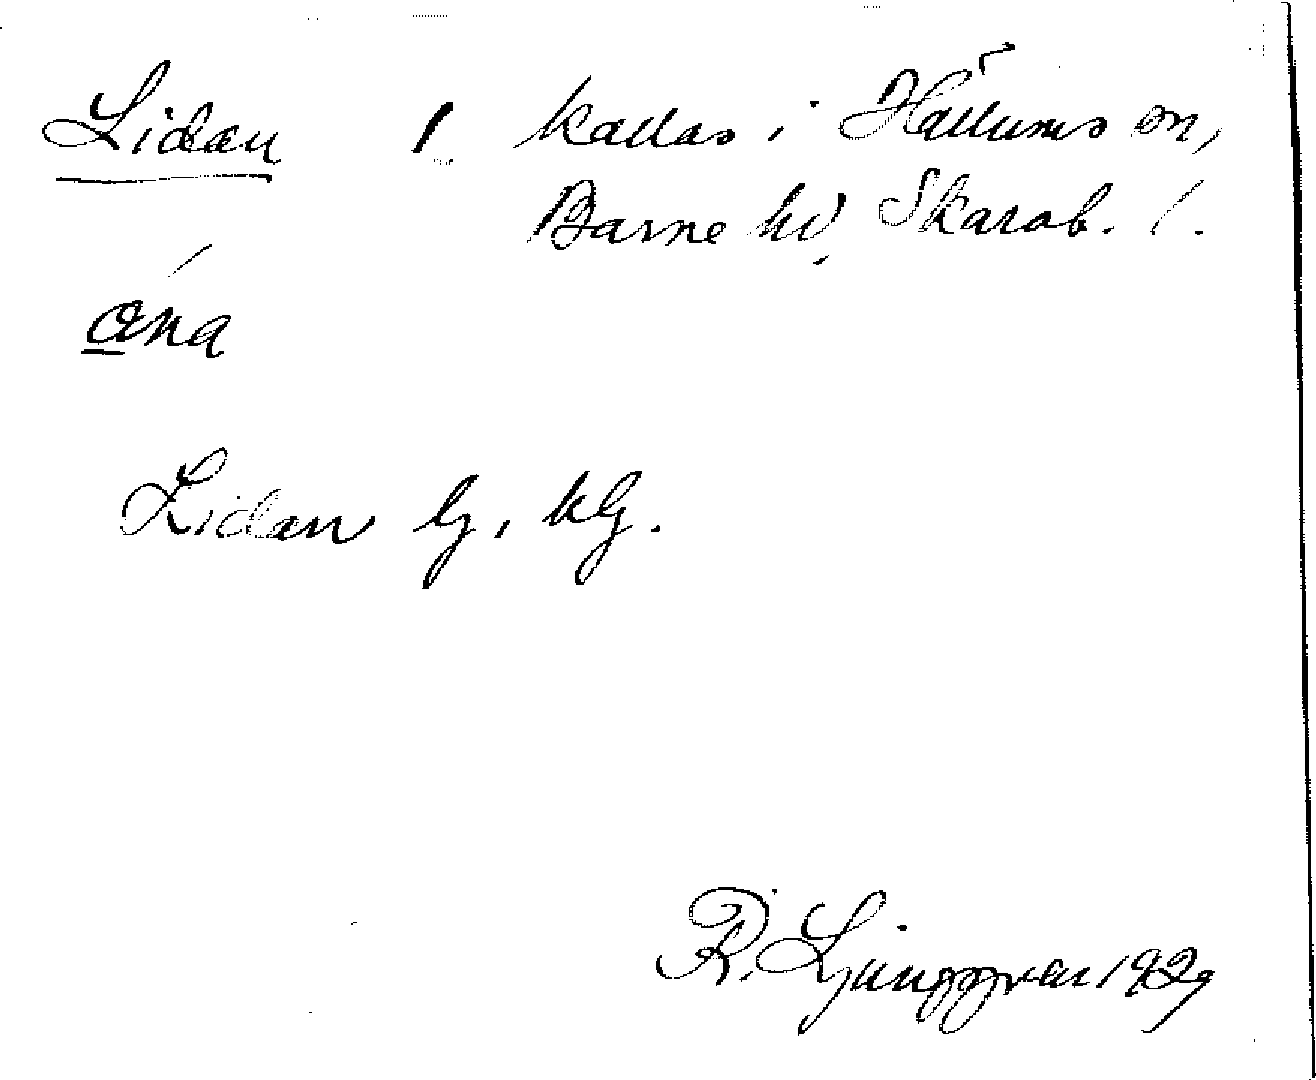 Lidan / kallas i Hällums sn,
Barne hd, Skarab. l.
ǫ́na
Lidan G, kG.
R. Ljunggren 1929